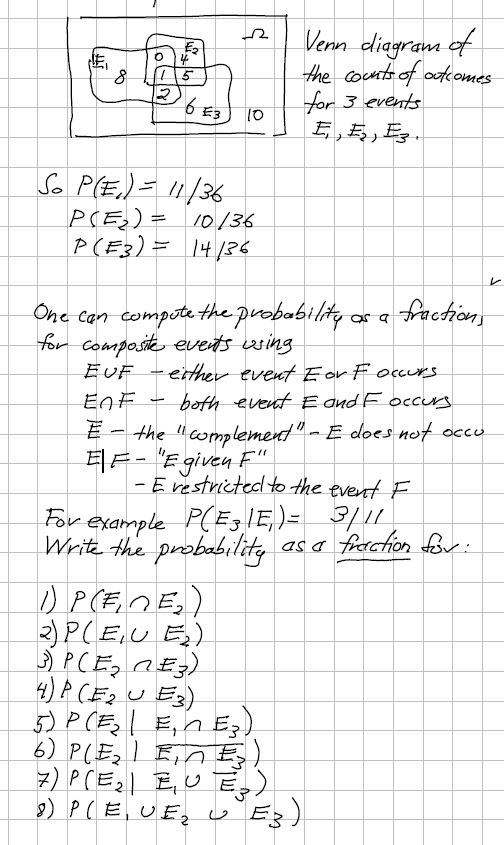 Ω
Venn diagram of
the counts of outcomes
for 3 events
E₁, E₂, E₃.
E₁ 8 0 E₂ 4
1 5
2 6 E₃ 10
So P(E₁) = 11/36
P(E₂) = 10/36
P(E₃) = 14/36
One can compute the probability as a fraction,
for composite events using
E∪F – either event E or F occurs
E∩F – both event E and F occurs
E̅ – the "complement" – E does not occu
E|F – "E given F"
– E restricted to the event F
For example P(E₃|E₁) = 3/11
Write the probability as a fraction for:
1) P(E₁ ∩ E₂)
2) P(E₁ ∪ E₂)
3) P(E₂ ∩ E₃)
4) P(E₂ ∪ E₃)
5) P(E₂ | E₁ ∩ E₃)
6) P(E₂ | E̅₁̅ ̅∩̅ ̅E̅₃̅)
7) P(E₂ | E̅₁ ∪ E̅₃)
8) P(E₁ ∪ E₂ ∪ E₃)